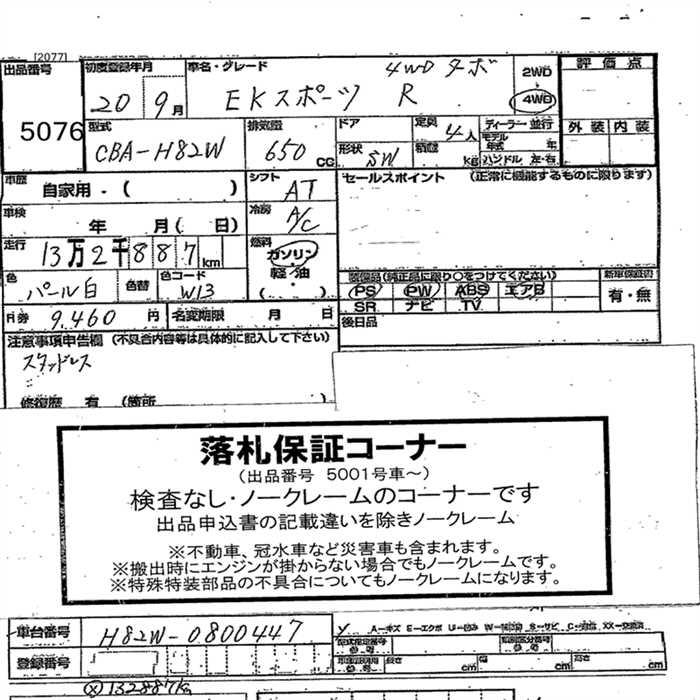 [2077]
出品番号 初度登録年月 車名・グレード 4WD ターボ 2WD 評価点
20 9月 EKスポーツ R 4WD
5076 外装 内装
型式 排気量 ドア 定員 4人 ディーラー 並行
CBA-H82W 650 CC 形状 SW 積載 kg モデル年式 年
ハンドル 左・右
車歴 自家用・( ) シフト AT セールスポイント (正常に機能するものに限ります)
車検 年 月( 日) 冷房 A/C
走行 13万2千887km 燃料 ガソリン・軽油・( )
色 パール白 色替 色コード W13
装備品(純正品に限り○をつけてください) 新車保証書
PS PW ABS エアB 有・無
SR ナビ TV
R券 9,460円 名変期限 月 日 後日品
注意事項申告欄 (不具合内容等は具体的に記入して下さい)
スタッドレス
修復歴 有 (箇所
落札保証コーナー
(出品番号 5001号車~)
検査なし・ノークレームのコーナーです
出品申込書の記載違いを除きノークレーム
※不動車、冠水車など災害車も含まれます。
※搬出時にエンジンが掛からない場合でもノークレームです。
※特殊特装部品の不具合についてもノークレームになります。
車台番号 H82W-0800447
登録番号 長さ cm 幅 cm 高さ cm
132887km